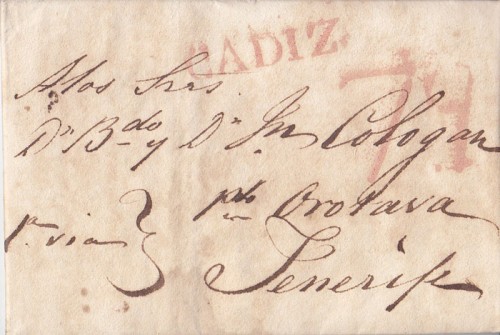 CADIZ.
A los Sres.
Dn. Bdo y Dn Jn Cologan
pto Orotava
1a. via
Tenerife